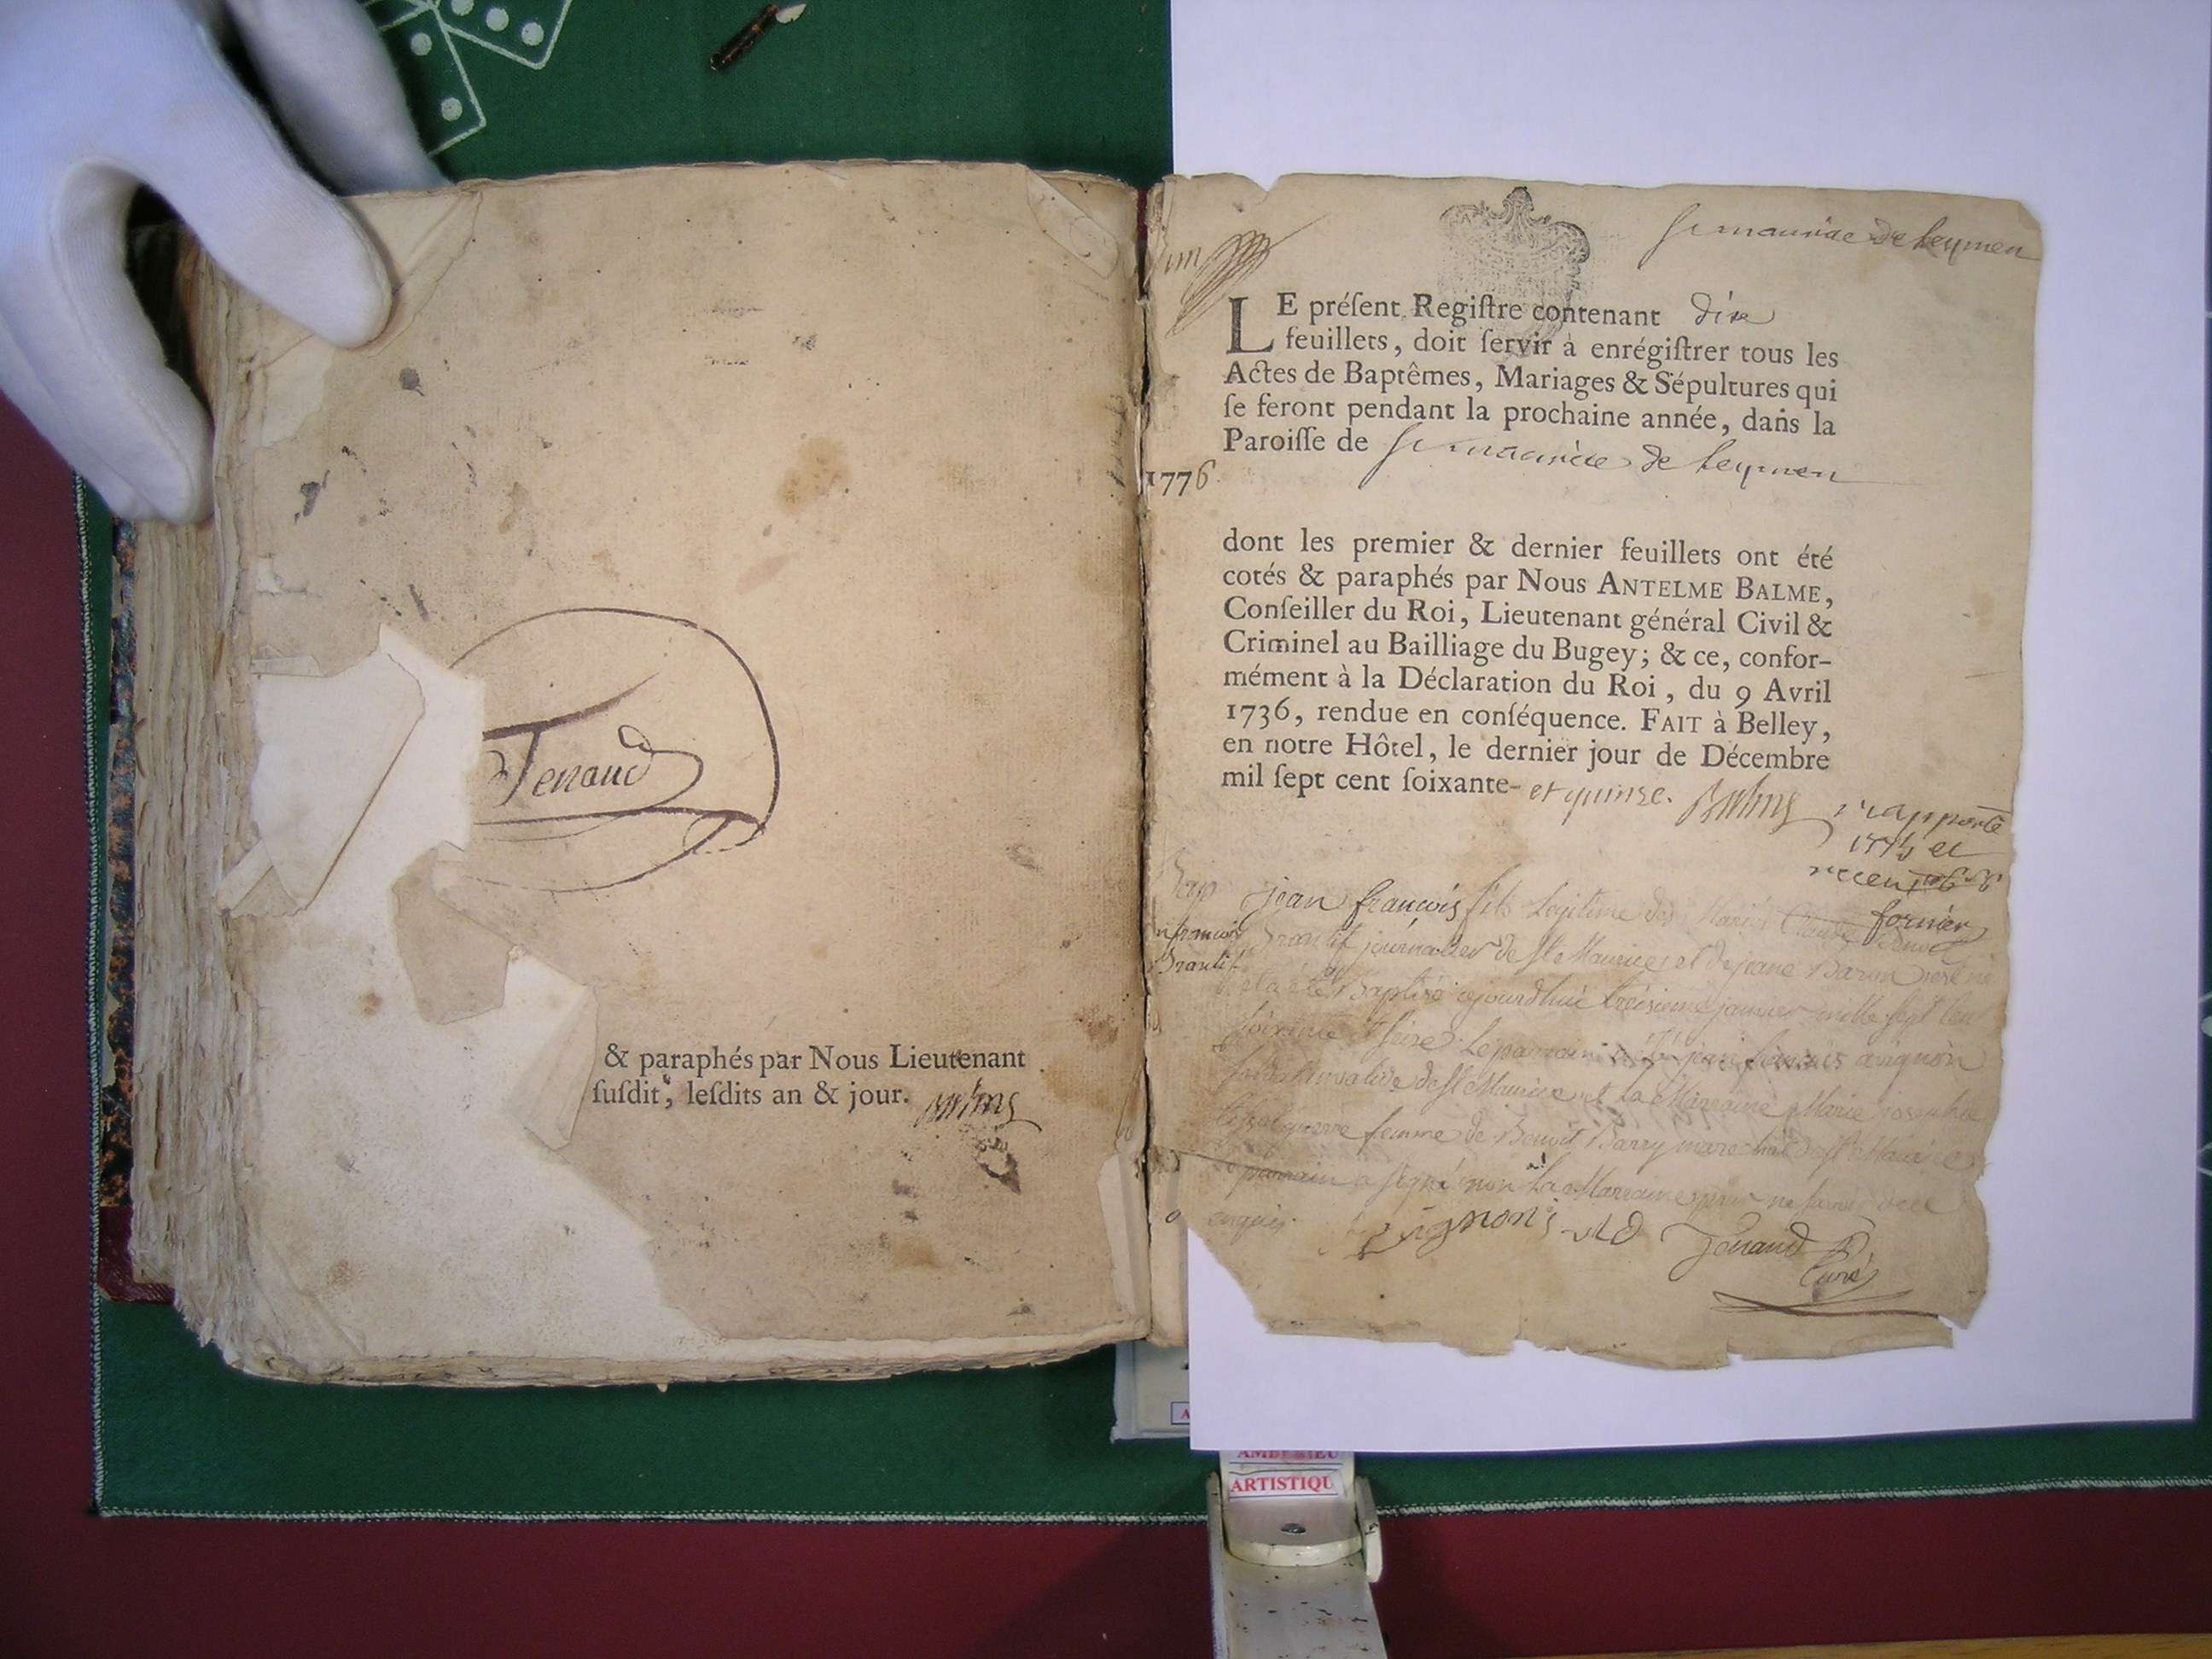 Tenaud
& paraphés par Nous Lieutenant
ſuſdit, leſdits an & jour. Balme
St maurice de Leymen
LE préſent Regiſtre contenant dix
feuillets, doit ſervir à enrégiſtrer tous les
Actes de Baptêmes, Mariages & Sépultures qui
ſe feront pendant la prochaine année, dans la
Paroiſſe de St maurice de Leymen
1776
dont les premier & dernier feuillets ont été
cotés & paraphés par Nous ANTELME BALME,
Conſeiller du Roi, Lieutenant général Civil &
Criminel au Bailliage du Bugey; & ce, confor-
mément à la Déclaration du Roi, du 9 Avril
1736, rendue en conſéquence. FAIT à Belley,
en notre Hôtel, le dernier jour de Décembre
mil ſept cent ſoixante- et quinze. Balme
rapporté
1775 et
Bap jean françois fils Legitime des Mariés
françois journalier de St Maurice et de jeane
Baptisé cejourdhui treisieme janvier mille sept cent
soixante et seize Le parrain a été jean françois avignon
soldat invalide de St Maurice et La Marraine Marie josephte
femme de Benoit Barry marechal de St Maurice
parrain a signé non La Marraine pour ne savoir
enquis
Tenaud
Curé
ARTISTIQU